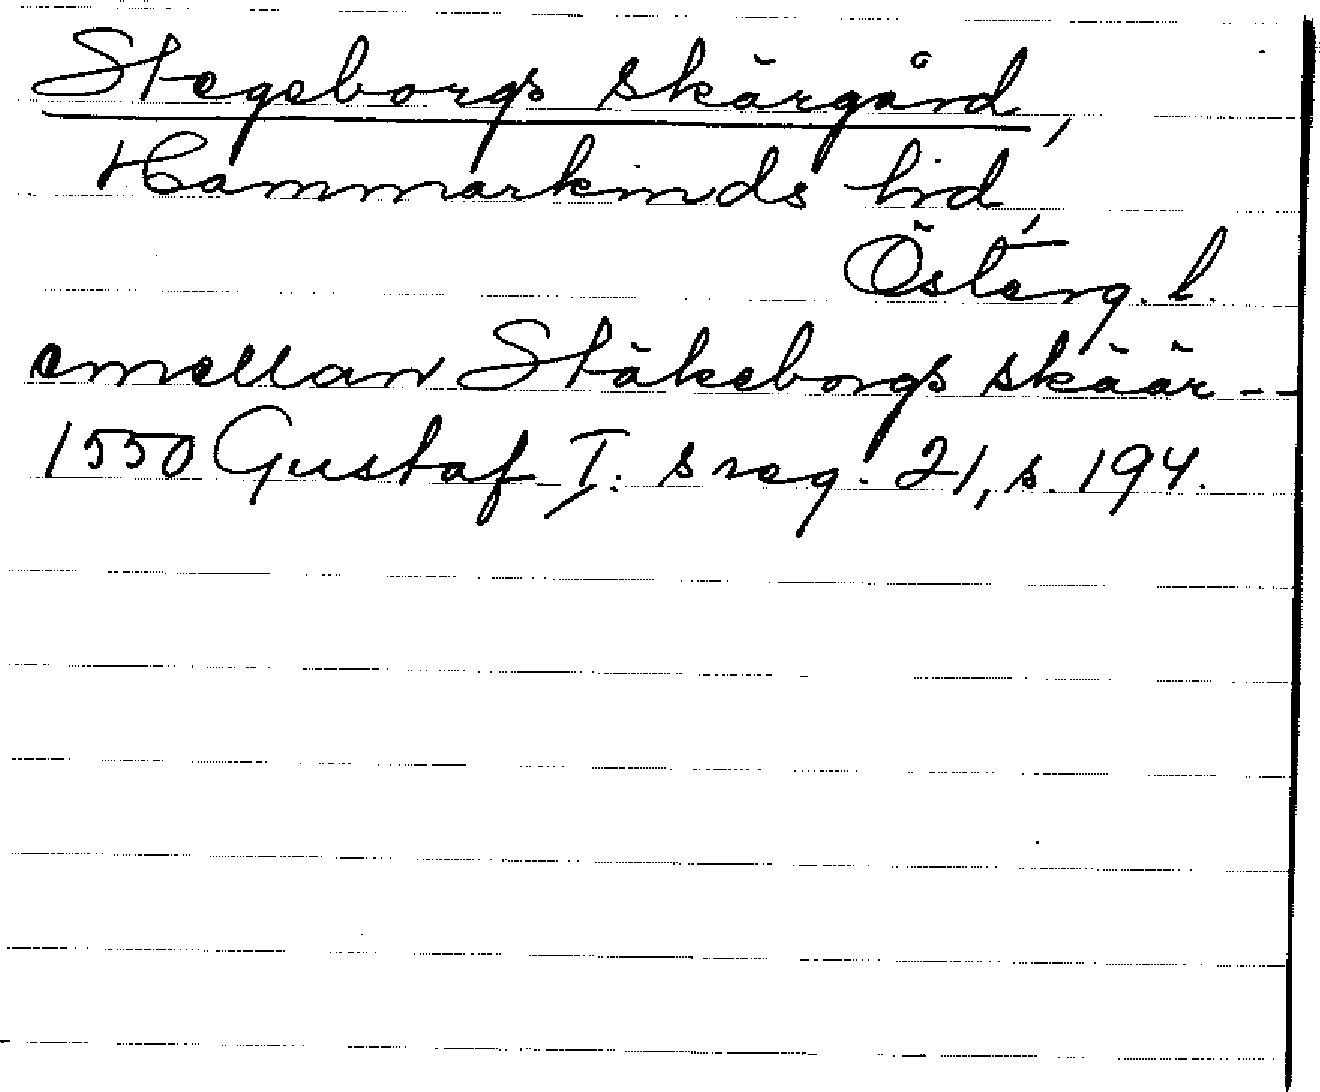 Stegeborgs skärgård,
Hammarkinds hd,
Österg. l.
emellan Stäkeborgs skäär --
1550 Gustaf I:s reg. 21, s. 194.